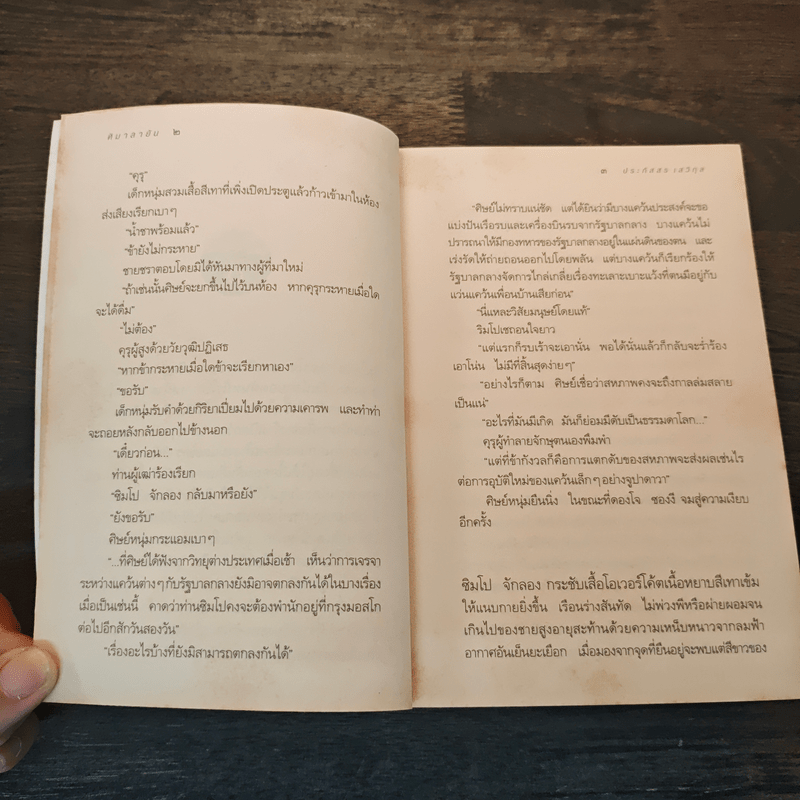 ศิมาลายัน ๒
"คุรุ"
เด็กหนุ่มสวมเสื้อสีเทาที่เพิ่งเปิดประตูแล้วก้าวเข้ามาในห้อง
ส่งเสียงเรียกเบาๆ
"น้ำชาพร้อมแล้ว"
"ข้ายังไม่กระหาย"
ชายชราตอบโดยมิได้หันมาทางผู้ที่มาใหม่
"ถ้าเช่นนั้นศิษย์จะยกขึ้นไปไว้บนห้อง หากคุรุกระหายเมื่อใด
จะได้ดื่ม"
"ไม่ต้อง"
คุรุผู้สูงด้วยวัยวุฒิปฏิเสธ
"หากข้ากระหายเมื่อใดข้าจะเรียกหาเอง"
"ขอรับ"
เด็กหนุ่มรับคำด้วยกิริยาเปี่ยมไปด้วยความเคารพ และทำท่า
จะถอยหลังกลับออกไปข้างนอก
"เดี๋ยวก่อน..."
ท่านผู้เฒ่าร้องเรียก
"ซิมโป จักลอง กลับมาหรือยัง"
"ยังขอรับ"
ศิษย์หนุ่มกระแอมเบาๆ
"...ที่ศิษย์ได้ฟังจากวิทยุต่างประเทศเมื่อเช้า เห็นว่าการเจรจา
ระหว่างแคว้นต่างๆกับรัฐบาลกลางยังมิอาจตกลงกันได้ในบางเรื่อง
เมื่อเป็นเช่นนี้ คาดว่าท่านซิมโปคงจะต้องพำนักอยู่ที่กรุงมอสโก
ต่อไปอีกสักวันสองวัน"
"เรื่องอะไรบ้างที่ยังมิสามารถตกลงกันได้"
๓ ประภัสสร เสวิกุล
"ศิษย์ไม่ทราบแน่ชัด แต่ได้ยินว่ามีบางแคว้นประสงค์จะขอ
แบ่งปันเรือรบและเครื่องบินรบจากรัฐบาลกลาง บางแคว้นไม่
ปรารถนาให้มีกองทหารของรัฐบาลกลางอยู่ในแผ่นดินของตน และ
เร่งรัดให้ถ่ายถอนออกไปโดยพลัน แต่บางแคว้นก็เรียกร้องให้
รัฐบาลกลางจัดการไกล่เกลี่ยเรื่องทะเลาะเบาะแว้งที่ตนมีอยู่กับ
แว่นแคว้นเพื่อนบ้านเสียก่อน"
"นี่แหละวิสัยมนุษย์โดยแท้"
ริมโปเชถอนใจยาว
"แต่แรกก็รบเร้าจะเอานั่น พอได้นั่นแล้วก็กลับจะร่ำร้อง
เอาโน่น ไม่มีที่สิ้นสุดง่ายๆ"
"อย่างไรก็ตาม ศิษย์เชื่อว่าสหภาพคงจะถึงกาลล่มสลาย
เป็นแน่"
"อะไรที่มันมีเกิด มันก็ย่อมมีดับเป็นธรรมดาโลก..."
คุรุผู้ทำลายจักษุตนเองพึมพำ
"แต่ที่ข้ากังวลก็คือการแตกดับของสหภาพจะส่งผลเช่นไร
ต่อการอุบัติใหม่ของแคว้นเล็กๆอย่างจูปาตาวา"
ศิษย์หนุ่มยืนนิ่ง ในขณะที่ตองโจ ซองงี จมสู่ความเงียบ
อีกครั้ง
ซิมโป จักลอง กระชับเสื้อโอเวอร์โค้ตเนื้อหยาบสีเทาเข้ม
ให้แนบกายยิ่งขึ้น เรือนร่างสันทัด ไม่พ่วงพีหรือผ่ายผอมจน
เกินไปของชายสูงอายุสะท้านด้วยความเหน็บหนาวจากลมฟ้า
อากาศอันเย็นยะเยือก เมื่อมองจากจุดที่ยืนอยู่จะพบแต่สีขาวของ